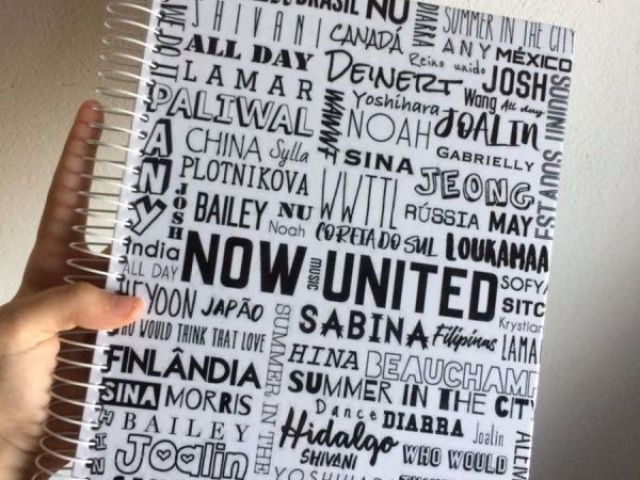 BRASIL NU
SHIVANI CANADÁ DIARRA SUMMER IN THE CITY
ANY MÉXICO
ALL DAY Reino unido
LAMAR DEINERT JOSH
Yoshihara Wang All day
PALIWAL WWWF NOAH JOALIN
CHINA Sylla SINA GABRIELLY
ANY PLOTNIKOVA WWTTL JEONG
JOSH BAILEY NU RÚSSIA MAY
Noah COREIA DO SUL LOUKAMAA
India
ALL DAY NOW MUSIC UNITED SOFYA
HEYOON JAPÃO SITC
Krystian
WHO WOULD THINK THAT LOVE SABINA Filipinas LAMA
FINLÂNDIA SUMMER IN THE HINA BEAUCHAMP
SUMMER IN THE CITY
SINA MORRIS Dance DIARRA Joalin
BAILEY Hidalgo WHO WOULD
Joalin SHIVANI
YOSHIHA